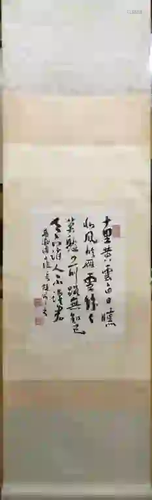 十里黄雲白日曛
北風吹雁雪紛々
莫愁前路無知己
天下誰人不識君